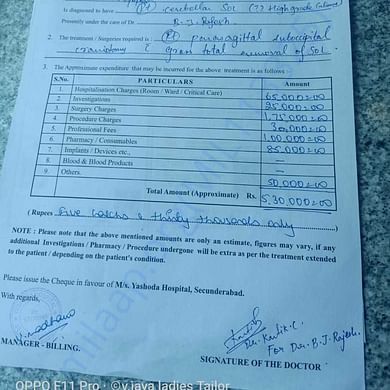 Is diagnosed to have (Rt) cerebellar SOL (?? High grade Glioma)
Presently under the care of Dr. B. J. Rajesh
2. The treatment / Surgeries required is : (Rt) paramagittal suboccipital
craniotomy & gross total removal of SOL.
3. The Approximate expenditure that may be incurred for the above treatment is as follows :
S.No. PARTICULARS Amount
1. Hospitalisation Charges (Room / Ward / Critical Care) 65,000=00
2. Investigations 25,000=00
3. Surgery Charges 1,75,000=00
4. Procedure Charges 30,000=00
5. Professional Fees 1,00,000=00
6. Pharmacy / Consumables 85,000=00
7. Implants / Devices etc.,
8. Blood & Blood Products —
9. Others. 50,000=00
Total Amount (Approximate) Rs. 5,30,000=00
( Rupees Five lakhs & thirty thousands only )
NOTE : Please note that the above mentioned amounts are only an estimate, figures may vary, if any
additional Investigations / Pharmacy / Procedure undergone will be extra as per the treatment extended
to the patient / depending on the patient's condition.
Please issue the Cheque in favour of M/s. Yashoda Hospital, Secunderabad.
With regards,
Dr. Kartik.C.
For Dr. B.J. Rajesh
MANAGER - BILLING.
SIGNATURE OF THE DOCTOR
milaap.org
OPPO F11 Pro · ©v jaya ladies Tailor